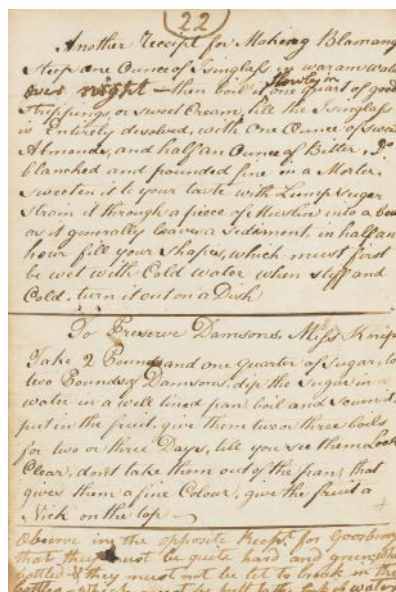 22
Another Receipt for Making Blamang
Steep one Ounce of Isinglass in waram wate
over night - then boil it Slowly in one quart of good
Strippings, or sweet Cream, till the Isinglass
is Entirely desolved, with One Ounce of swee
Almonds, and half an Ounce of Bitter, Do
blanched and pounded fine in a Morter,
sweeten it to your taste with Lump sugar
strain it through a piece of Muslin into a bo
as it generally leaves a Sediment, in half an
hour fill your shapes, which must first
be wet with Cold water when stiff and
Cold, turn it out on a Dish
To Preserve Damsons, Miss Knip
Take 2 Pound and one Quarter of Sugar, to
two Pounds of Damsons, dip the Sugar in a
water in a well tined pan, boil and scum it,
put in the fruit, give them two or three boils,
for two or three Days, till you see them Look
Clear, dont take them out of the pan, that
gives them a fine Colour, give the fruit a
Nick on the top
Observe in the opposite Rec&#101;pt for Goosberry
that they must be quite hard and green, whe
bottled & they must not be let to break in the